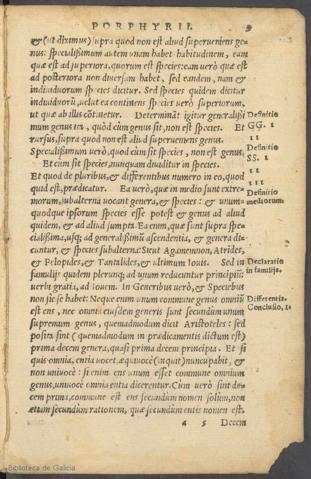 PORPHYRII. 9
& (ut diximus) supra quod non est aliud superueniens ge-
nus: specialissimum autem unam habet habitudinem, eam
quæ est ad superiora, quorum est species: eam uerò quæ est
ad posteriora non diuersam habet, sed eandem, nam &
indiuiduorum species dicitur. Sed species quidem dicitur
indiuiduorũ, uelut ea continens species uerò superiorum,
ut quæ ab illis cõtinetur. Determinãt igitur generalissi
mum genus ita, quòd cùm genus sit, non est species. Et
rursus, supra quod non est aliud superueniens genus.
Specialissimum uerò, quod cùm sit species, non est genus.
Et cùm sit species, nunquam diuiditur in species.
Et quod de pluribus, & differentibus numero in eo, quod
quid est, prædicatur. Ea uerò, quæ in medio sunt extre-
morum, subalterna uocant genera, & species: & unum-
quodque ipsorum species esse potest & genus ad aliud
quidem, & ad aliud sumpta. Ea enim, quæ sunt supra spe-
cialissima, usq; ad generalissimũ ascendentia, & genera di-
cuntur, & species subalterna: Sicut Agamemnon, Atrides,
& Pelopides, & Tantalides, & ultimum Iouis. Sed in
familijs quidem plerunq; ad unum reducuntur principiũ:
uerbi gratia, ad Iouem. In Generibus uerò, & Speciebus
non sic se habet: Neque enim unum commune genus omniũ
est ens, nec omnia eiusdem generis sunt secundum unum
supremum genus, quemadmodum dicit Aristoteles: sed
posita sint (quemadmodum in prædicamentis dictum est)
prima decem genera, quasi prima decem principia. Et si
quis omnia, entia uocet, æquiuocè (inquit) nuncupabit, &
non uniuocè: si enim ens unum esset commune omnium
genus, uniuocè omnia entia dicerentur. Cùm uerò sint de-
cem prima, commune est ens secundum nomen solùm, non
etiam secundum rationem, quæ secundum entis nomen est.
a 5 Decem
Definitio
GG. I
II
Definitio
SS. I
II
III
Definitio
mediorum
Declaratio
in familijs.
Differentia.
Conclusio, I.
Biblioteca de Galicia